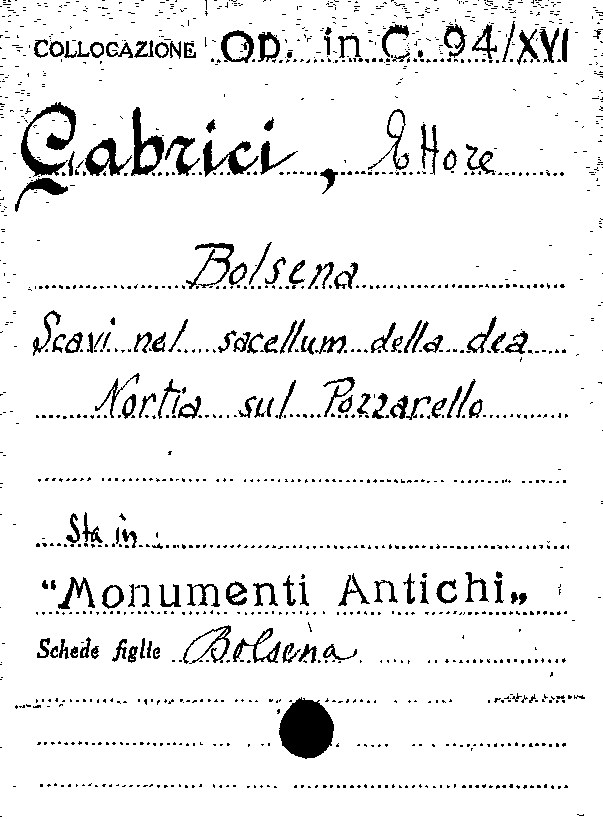 COLLOCAZIONE OP. in C. 94/XVI
Gabrici, Ettore
Bolsena
Scavi nel sacellum della dea
Nortia sul Pozzarello
Sta in:
"Monumenti Antichi„
Schede figlie Bolsena